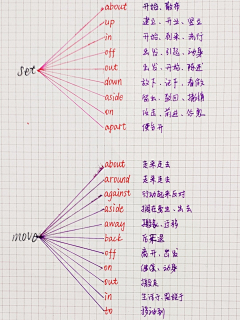 set
about 开始、散布
up 建立、开业、竖立
in 开始、到来、流行
off 出发、引起、动身
out 出发、开始、陈述
down 放下、记下
aside 留出、驳回
on 前进
apart 使分开
move
about 走来走去
around 走来走去
against 行动起来反对
aside 搬到旁边、出去
away 搬家、迁移
back 后退
off 离开、出发
on 继续、动身
out 搬走
in 生活于
to 移动到